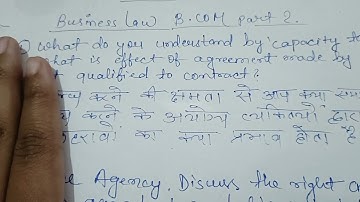 Business Law B.COM part 2.
what do you understand by capacity to
what is effect of agreement made by
qualified to contract?
करने की क्षमता से आप क्या
करने के अयोग्य व्यक्तियों द्वारा
ठहरावों का क्या प्रभाव होता है
Agency. Discuss the right